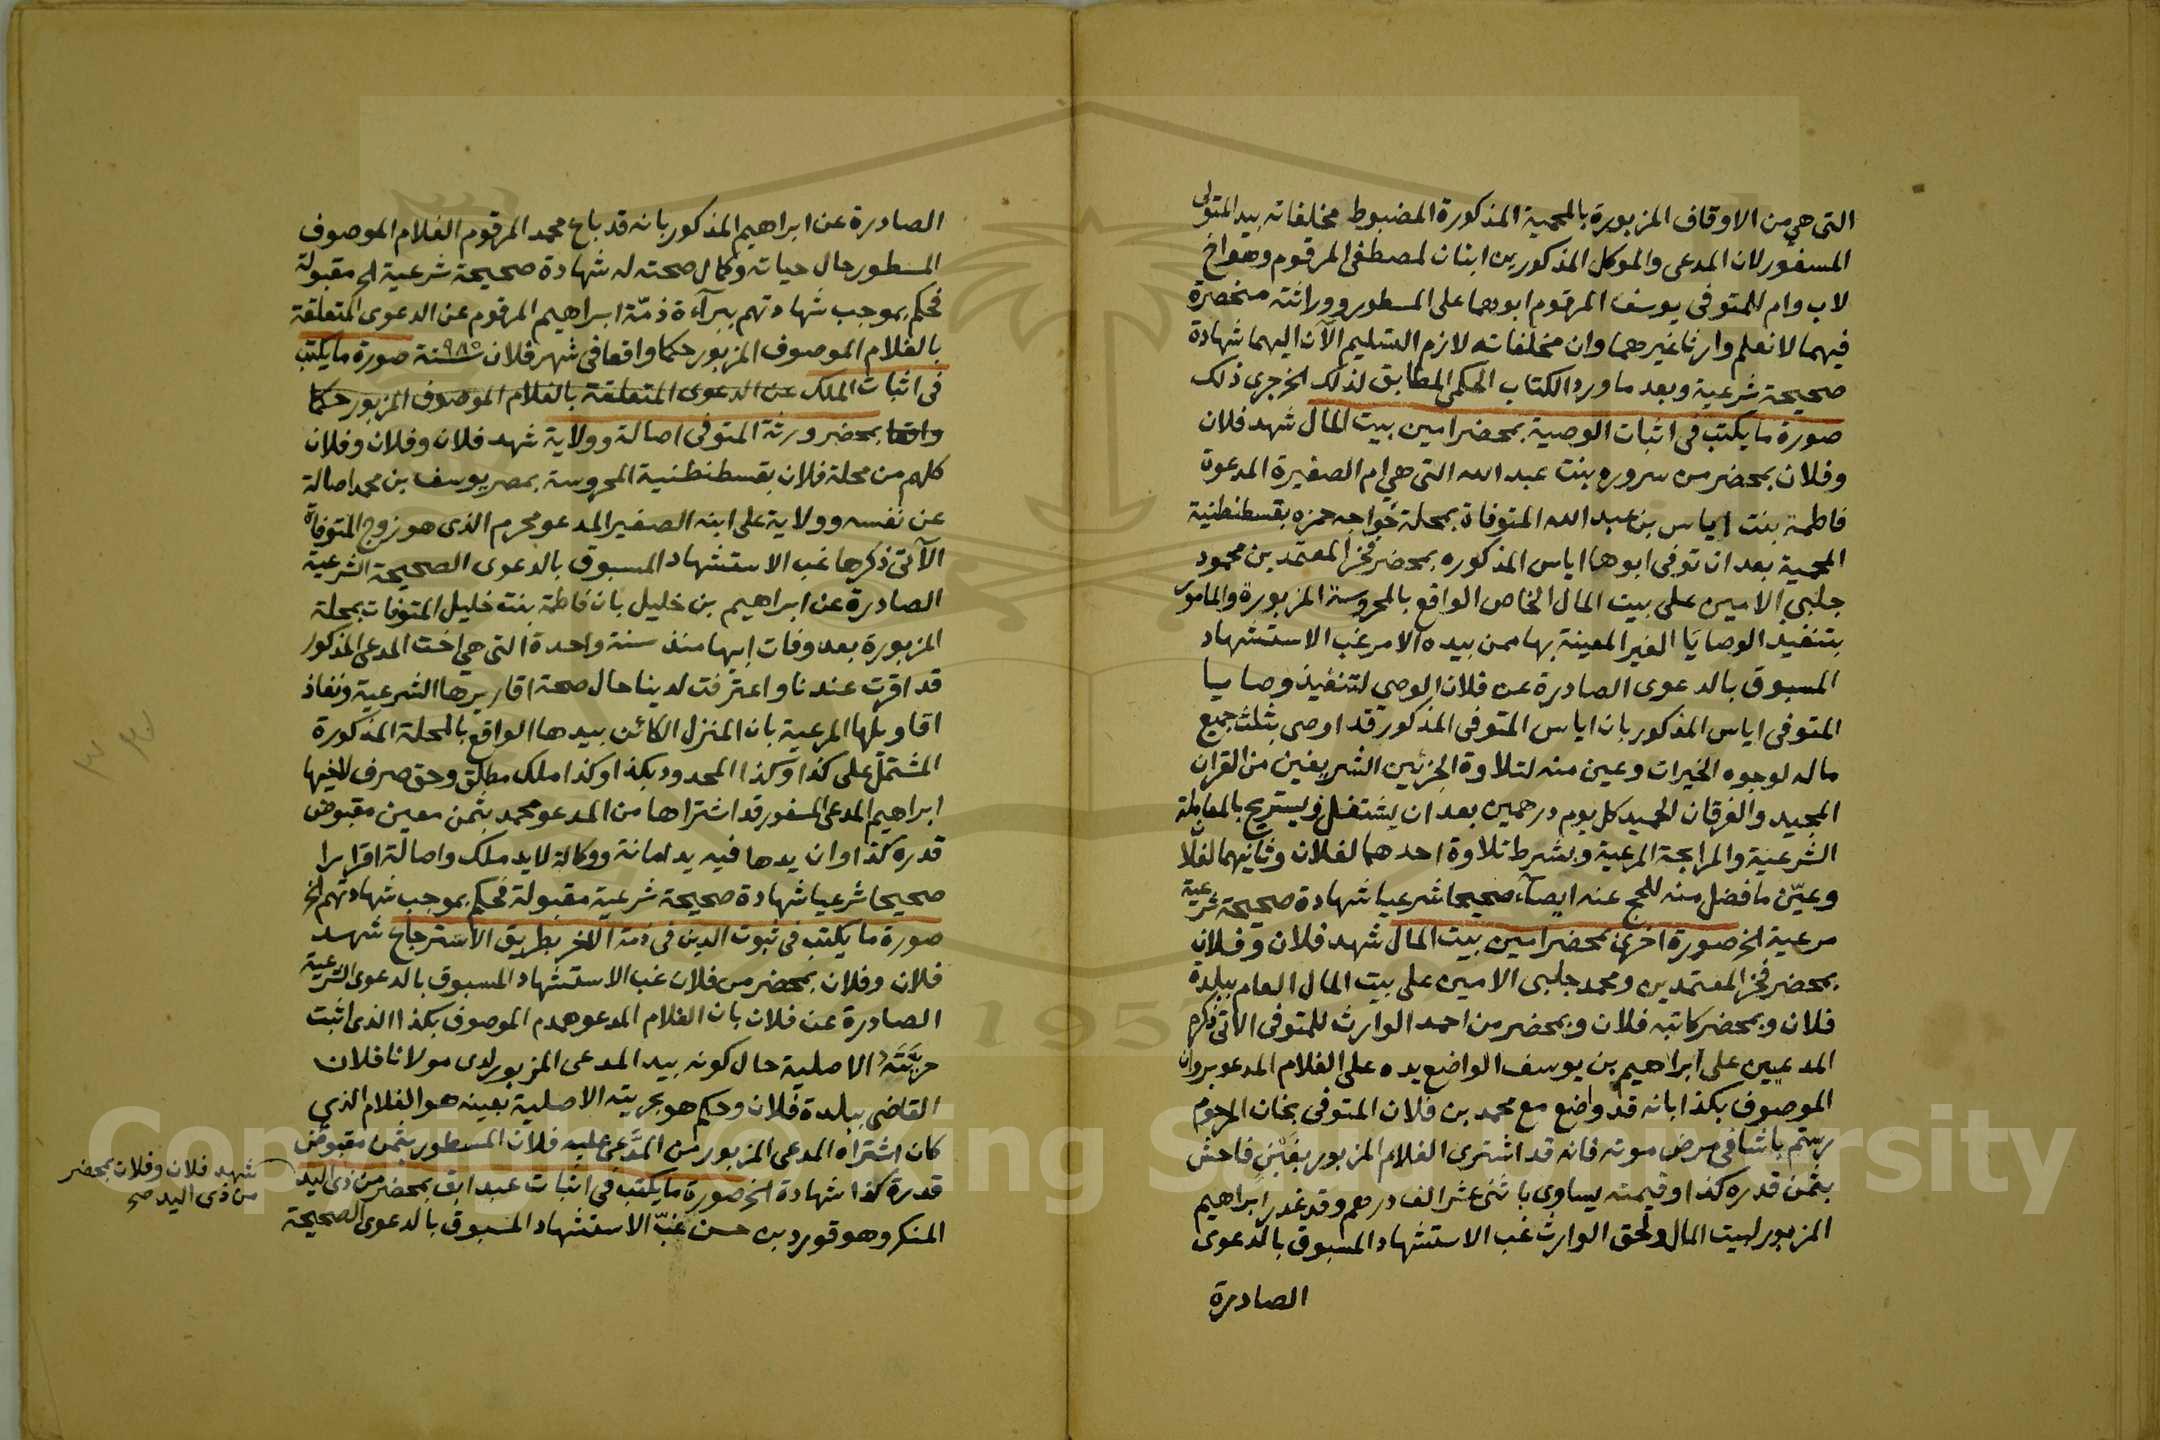 التى هي من الاوقاف المزبورة بالمحمية المذكورة المضبوط مخلفاته بيد المتولى
المسفور لان المدعى والموكل المذكورين ابنان لمصطفى المرقوم وهو اخ
لاب وام للمتوفى يوسف المرقوم ابوهما على المسطور ووراثته منحصرة
فيهما لا نعلم وارثا غيرهما وان مخلفاته لازم التسليم الآن اليهما شهادة
صحيحة شرعية وبعد ما ورد الكتاب الحكمى المطابق لذلك الخ جرى ذلك
صورة ما يكتب فى اثبات الوصية بمحضر امين بيت المال شهد فلان
وفلان بمحضر من سروره بنت عبد الله التى هي ام الصغيرة المدعوة
فاطمة بنت اياس بن عبد الله المتوفاة بمحلة خواجه حمزه بقسطنطنية
المحمية بعد ان توفى ابوها اياس المذكوره بمحضر فخر المعتمد بن محمود
جلبي الامين على بيت المال الخاص الواقع بالمحروسة المزبورة والمامور
بتنفيذ الوصايا الغير المعينة بها ممن بيده الامر غب الاستشهاد
المسبوق بالدعوى الصادرة عن فلان الوصي لتنفيذ وصايا
المتوفى اياس المذكور بان اياس المتوفى المذكور قد اوصى بثلث جميع
ماله لوجوه الخيرات وعين منه لتلاوة الجزئين الشريفين من القران
المجيد والفرقان الحميد كل يوم درهمين بعد ان يشتغل ويستربح بالمعاملة
الشرعية والمرابحة المرعية وبشرط تلاوة احدهما لفلان وثانيهما لفلا
وعيّن ما فضل منه للحج عنه ايصآء صحيحا شرعيا شهادة صحيحة شرعية
مرعية الخ صورة اخرى بمحضر امين بيت المال شهد فلان وفلان
بمحضر فخر المعتمدين ومحمد جلبى الامين على بيت المال العام ببلدة
فلان وبمحضر كاتبه فلان وبمحضر من احمد الوارث للمتوفى الاتى ذكره
المدعيين على ابراهيم بن يوسف الواضع يده على الغلام المدعو بروان
الموصوف بكذا بانه قد واضع مع محمد بن فلان المتوفى بخان المرحوم
رستم باشا فى مرض موته فانه قد اشترى الغلام المزبور بغبن فاحش
بثمن قدره كذا وقيمته يساوى باثنى عشر الف درهم وقد غدر ابراهيم
المزبور لبيت المال ولحق الوارث غب الاستشهاد المسبوق بالدعوى
الصادرة
الصادرة عن ابراهيم المذكور بانه قد باع محمد المرقوم الغلام الموصوف
المسطور حال حياته وكمال صحته له شهادة صحيحة شرعية الخ مقبولة
فحكم بموجب شهادتهم ببرآءة ذمّة ابراهيم المرقوم عن الدعوى المتعلقة
بالغلام الموصوف المزبور حكما واقعا فى شهر فلان سنة ٩٨٥ صورة ما يكتب
فى اثبات الملك عن الدعوى المتعلقة بالغلام الموصوف المزبور حكما
واقعا بمحضر ورثة المتوفى اصالة وولاية شهد فلان وفلان وفلان
كلهم من محلة فلان بقسطنطنية المحروسة بمصر يوسف بن محمد اصالة
عن نفسه وولاية على ابنه الصغير المدعو محرم الذى هو زوج المتوفاة
الآتى ذكرها غب الاستشهاد المسبوق بالدعوى الصحيحة الشرعية
الصادرة عن ابراهيم بن خليل بان فاطمة بنت خليل المتوفات بمحلة
المزبورة بعد وفات ابيها منذ سنة واحدة التى هي اخت المدعى المذكور
قد اقرت عندنا واعترفت لدينا حال صحة اقاريرها الشرعية ونفاذ
اقاويلها المرعية بان المنزل الكائن بيدها الواقع بالمحلة المذكورة
المشتمل على كذا وكذا المحدود بكذا وكذا ملك مطلق وحق صرف لاخيها
ابراهيم المدعى المسفور قد اشتراها من المدعو محمد بثمن معين مقبوض
قدره كذا وان يدها فيه يد امانة ووكالة لا يد ملك واصالة اقرارا
صحيحا شرعيا شهادة صحيحة شرعية مقبولة فحكم بموجب شهادتهم الخ
صورة ما يكتب فى ثبوت الدين فى ذمة الاخر بطريق الاسترجاع شهد
فلان وفلان بمحضر من فلان غب الاستشهاد المسبوق بالدعوى الشرعية
الصادرة عن فلان بان الغلام المدعو همدم الموصوف بكذا الذى اثبت
حريته الاصلية حال كونه بيد المدعى المزبور لدى مولانا فلان
القاضى ببلدة فلان وحكم هو بحريته الاصلية بعينه هو الغلام الذي
كان اشتراه المدعى المزبور من المدّعى عليه فلان المسطور بثمن مقبوض
قدره كذا شهادة الخ صورة ما يكتب فى اثبات عبد ابق بمحضر من ذى اليد
المنكر وهو قورد بن حسن غبّ الاستشهاد المسبوق بالدعوى الصحيحة
شهد فلان وفلان بمحضر
من ذى اليد صح
Copyright © King Saud University
1957